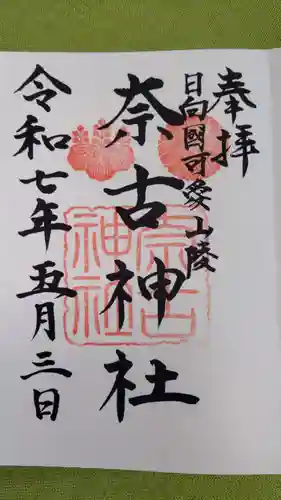 奉拝
日向國可愛山陵
奈古神社
令和七年五月三日
奈古神社